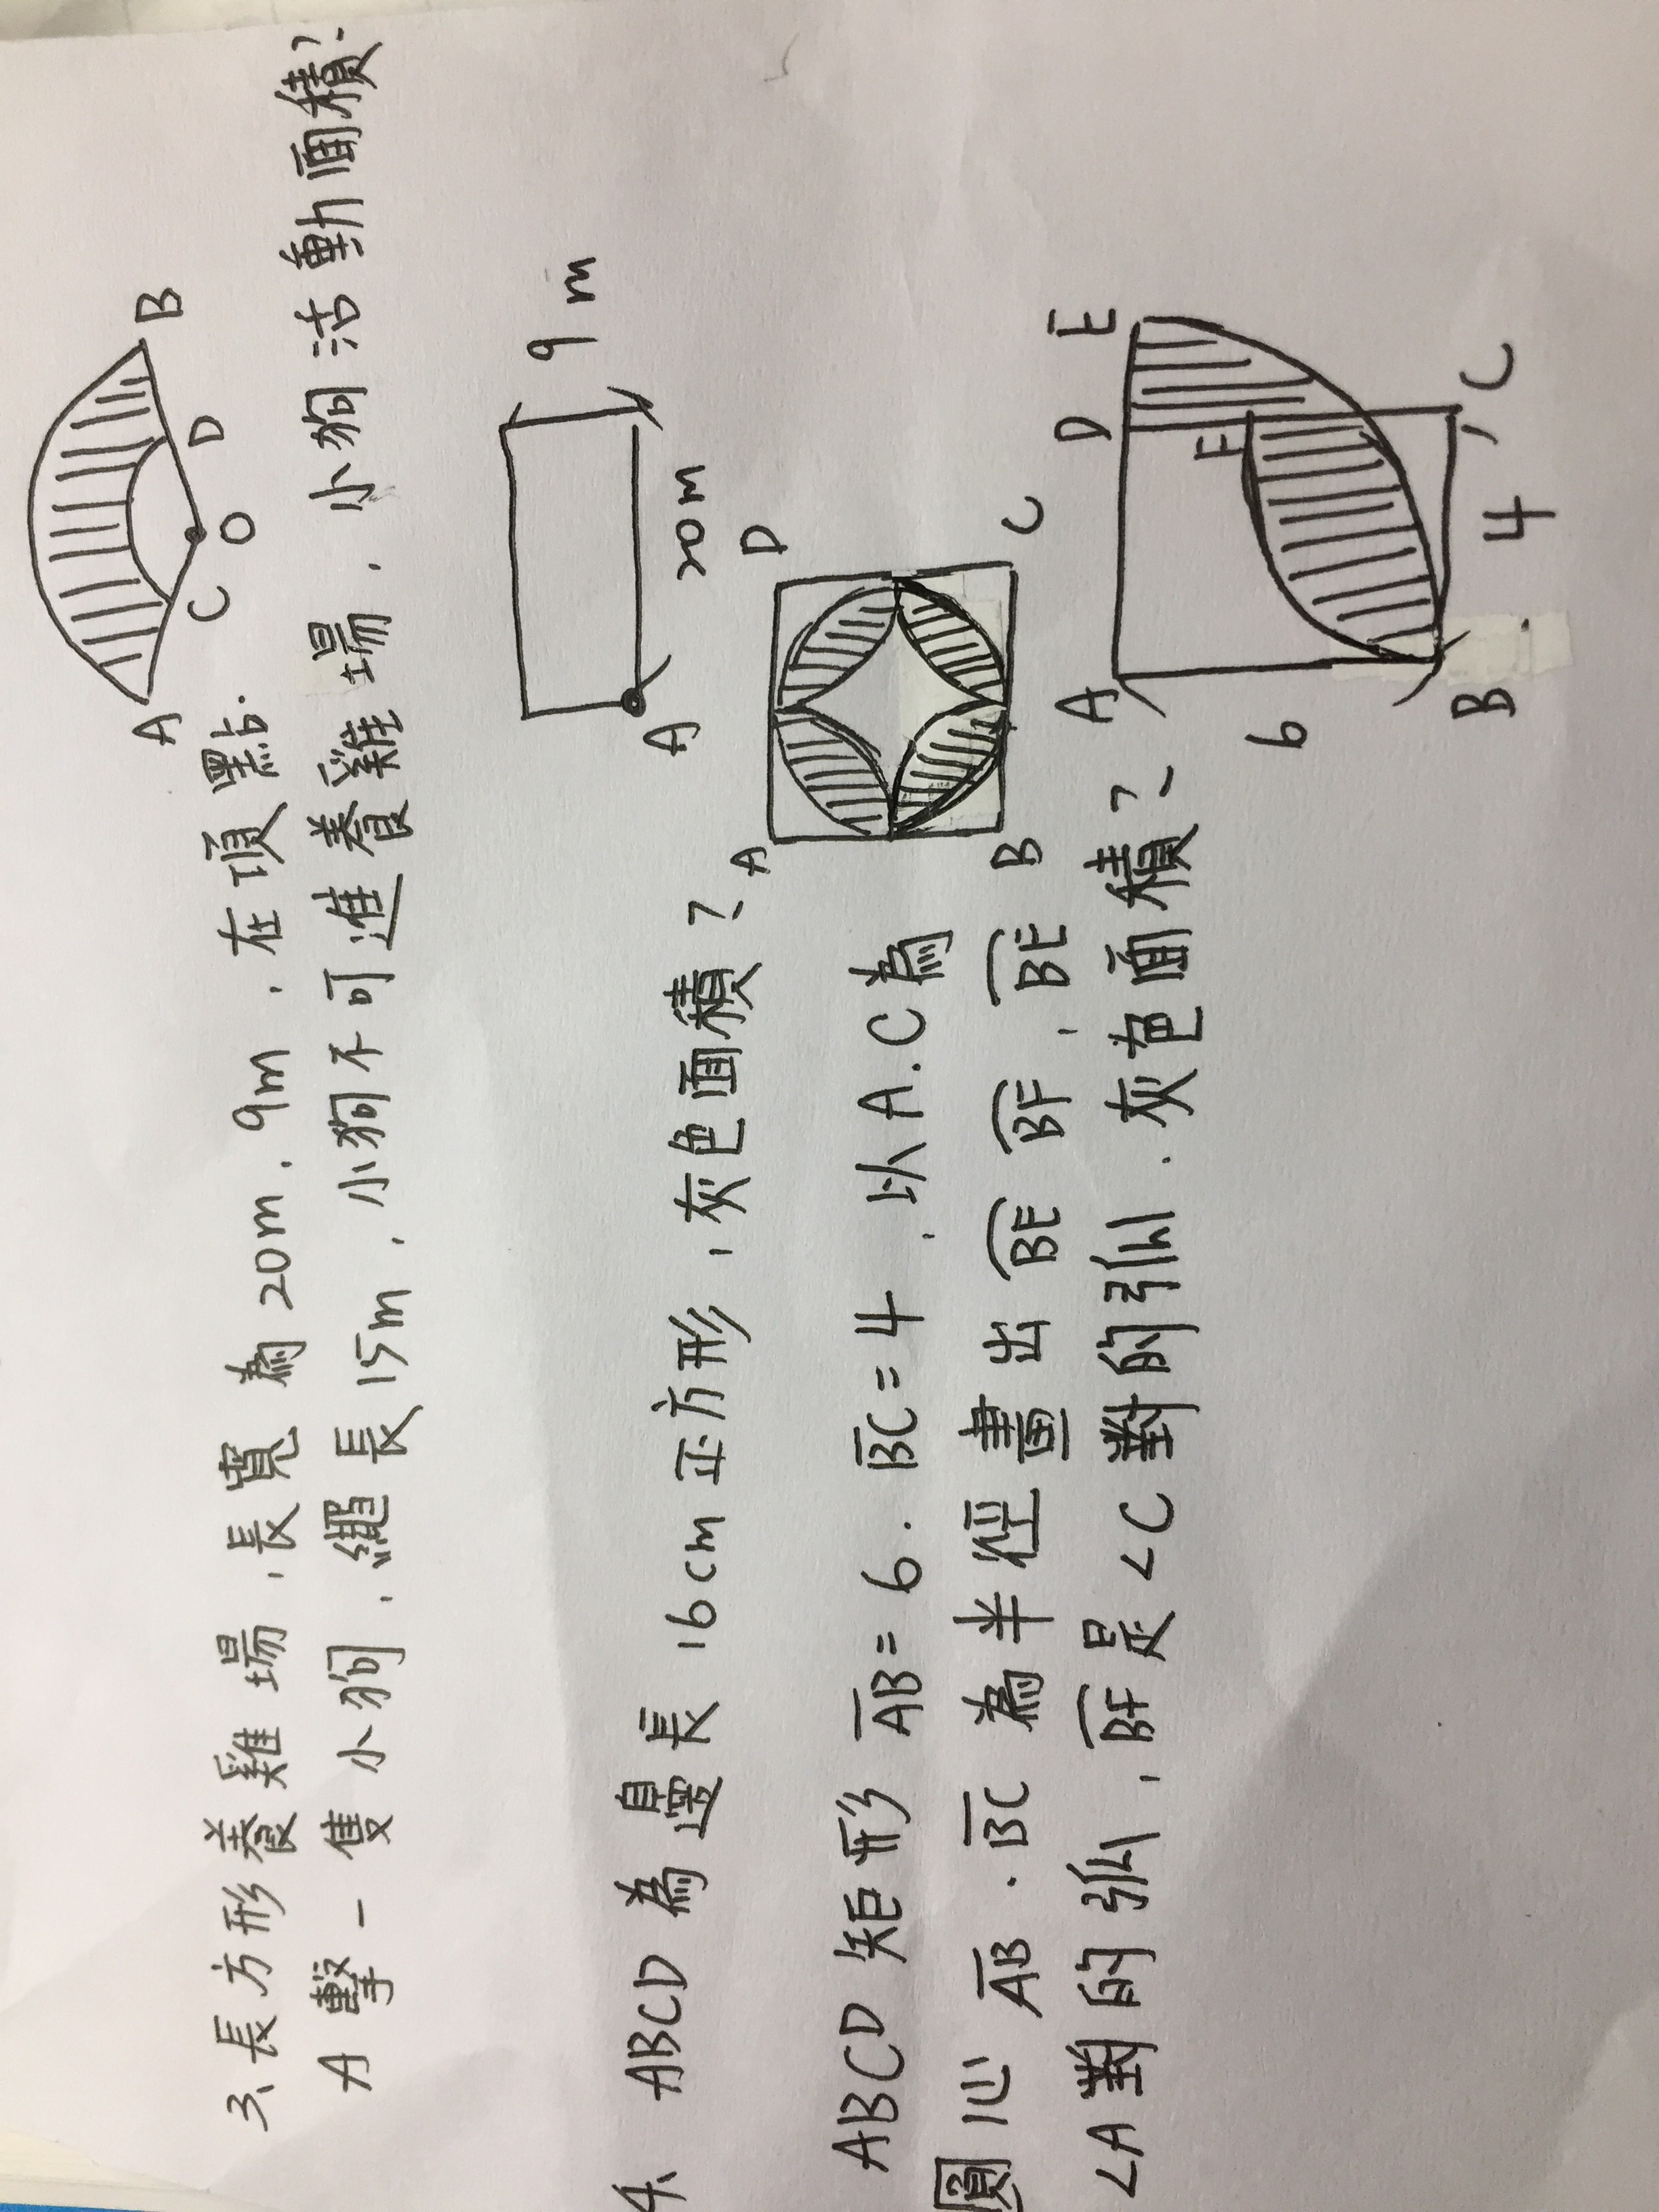 A
B
C
D
O
3、長方形養雞場,長寬為20m.9m.在頂點.
A擊一隻小狗.繩長15m.小狗不可進養雞場.小狗活動面積?
9m
20m
A
4、ABCD為邊長16cm正方形,灰色面積?
A
D
B
C
ABCD矩形 AB=6.BC=4.以A.C為
圓心 AB.BC為半徑畫出 BE BF.BE
∠A對的弧,BF是∠C對的弧.灰色面積?
A
D
E
F
6
B
4
C